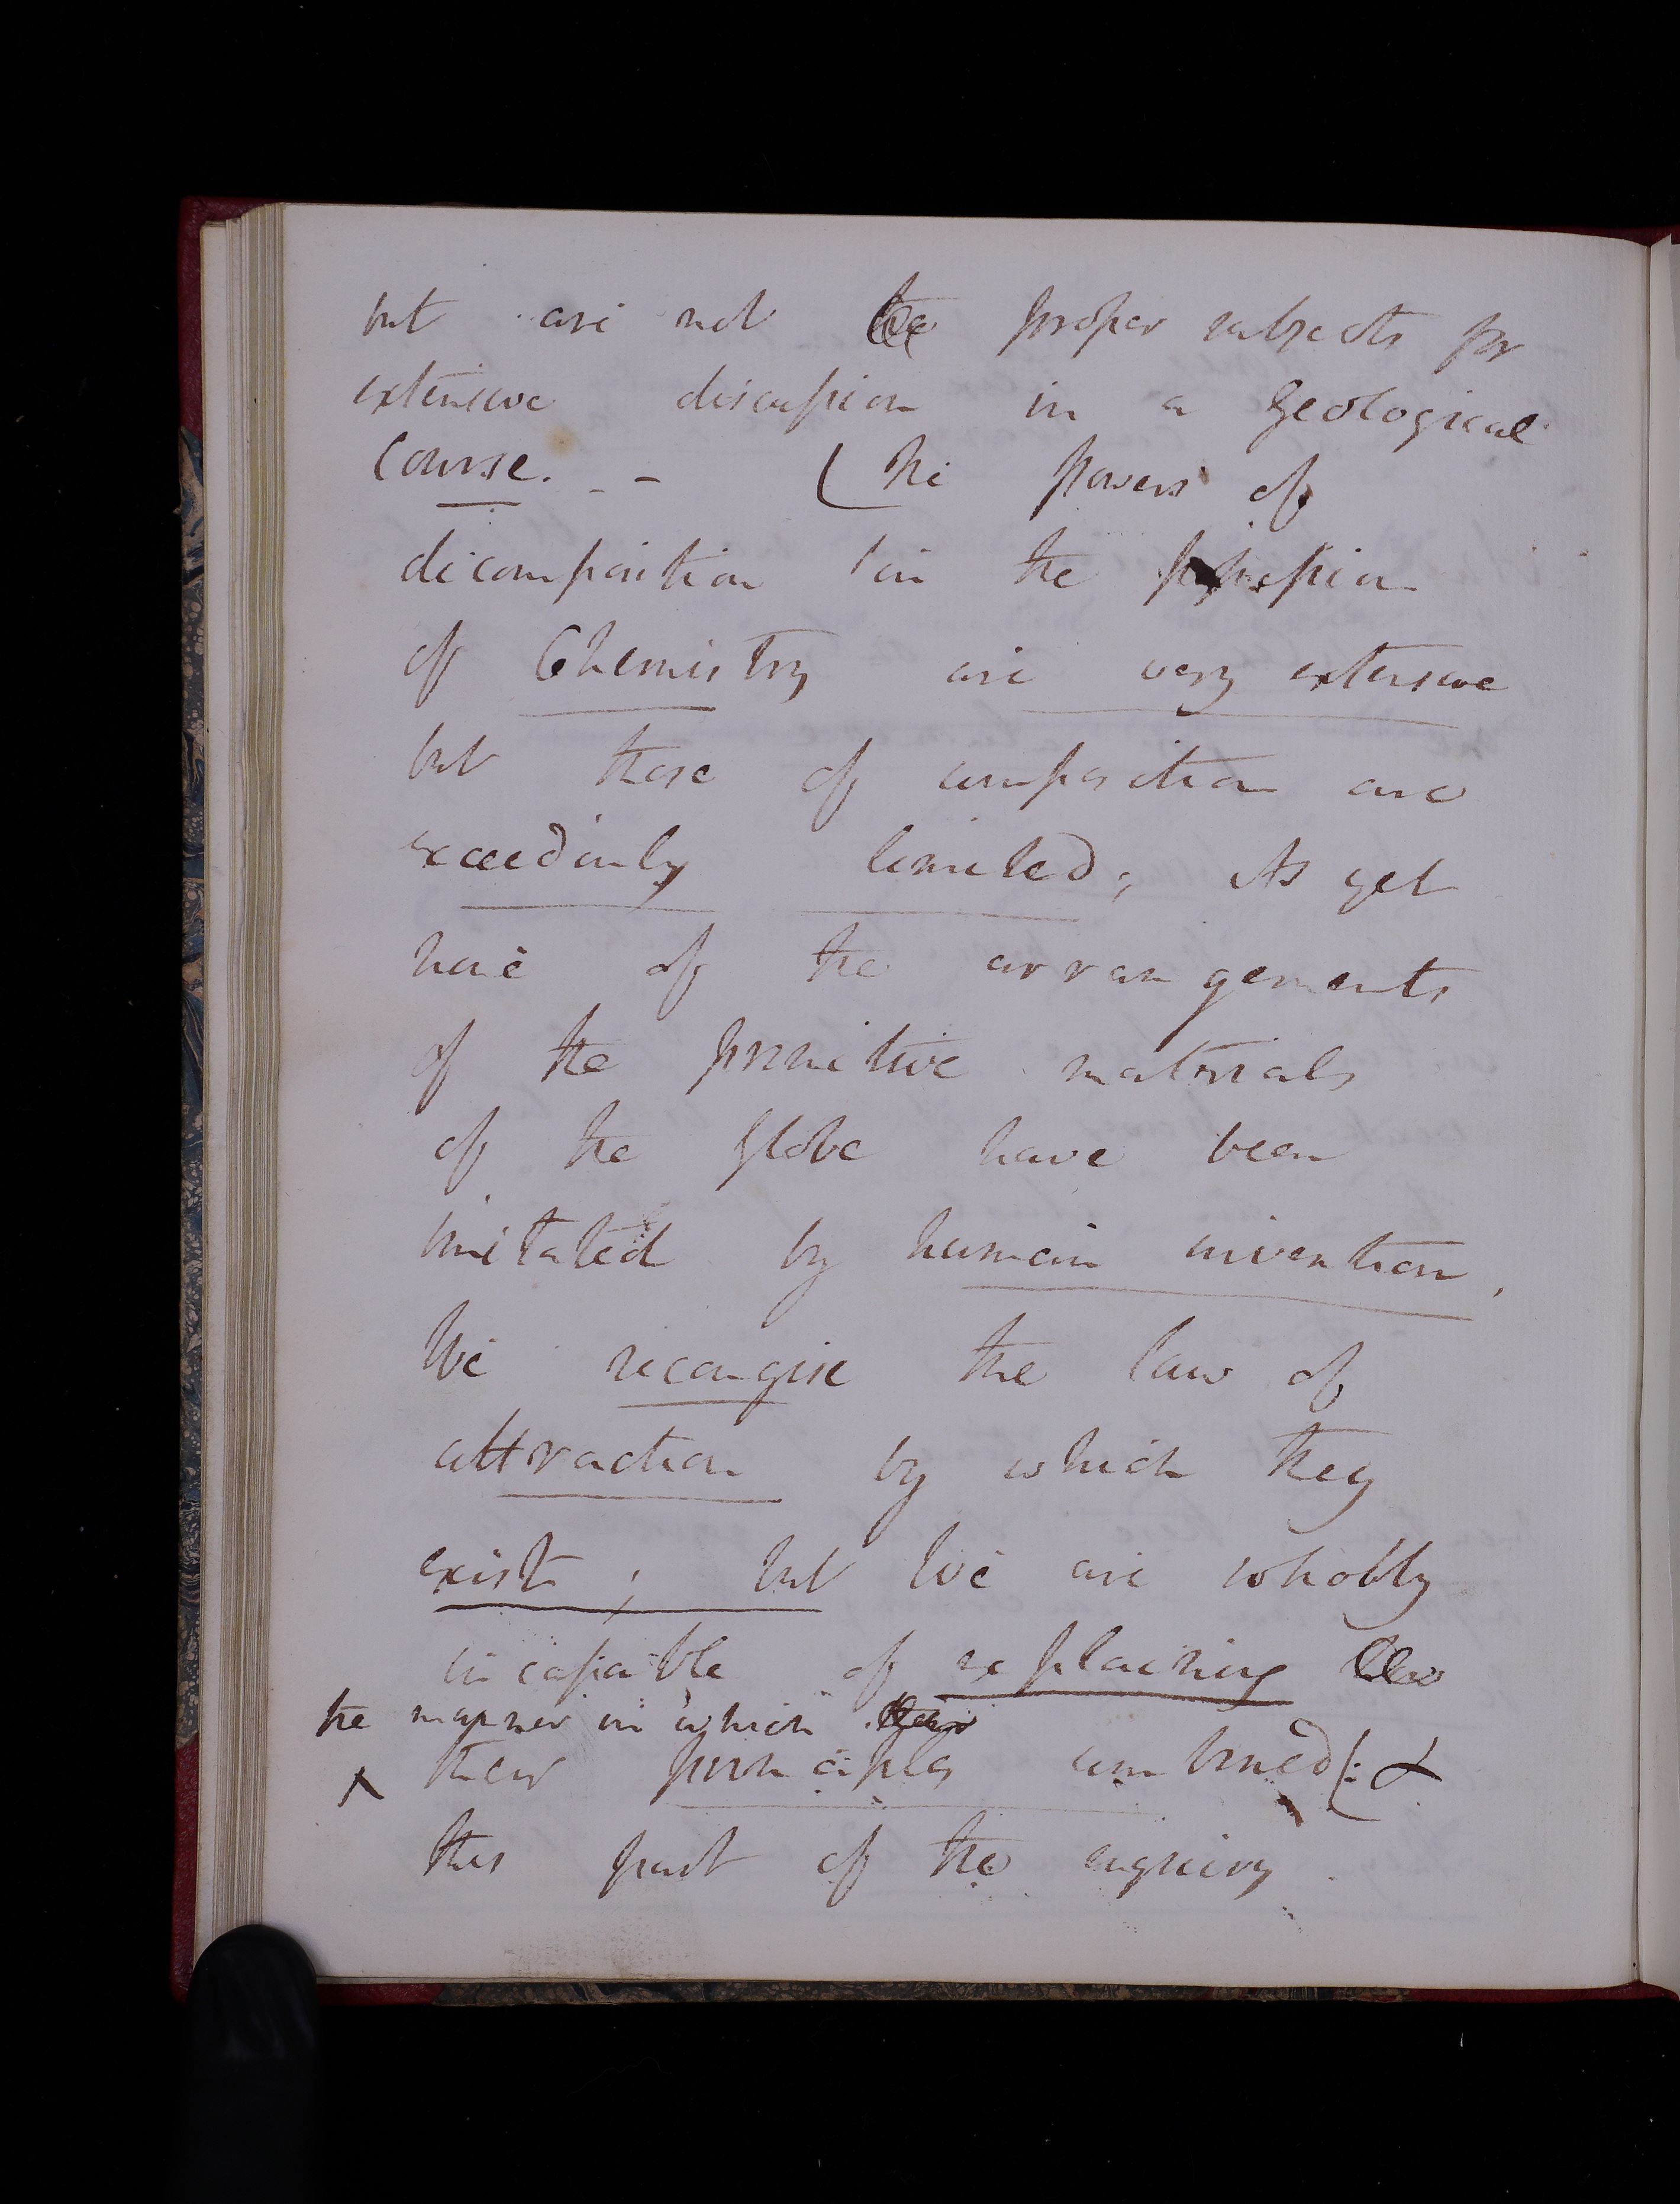 but are not the proper subjects for
extensive discussion in a Geological
Course. _ _ (The powers of
decomposition in the possession
of Chemistry are very extensive
but those of composition are
exceedinly limited; As yet
none of the arrangements
of the primitive materials
of the globe have been
imitated by human invention,
We recongise the law of
attraction by which they
exist; but We are wholly
incapable of explaining
the manner in which
their principles combined:
this part of the enquiry.